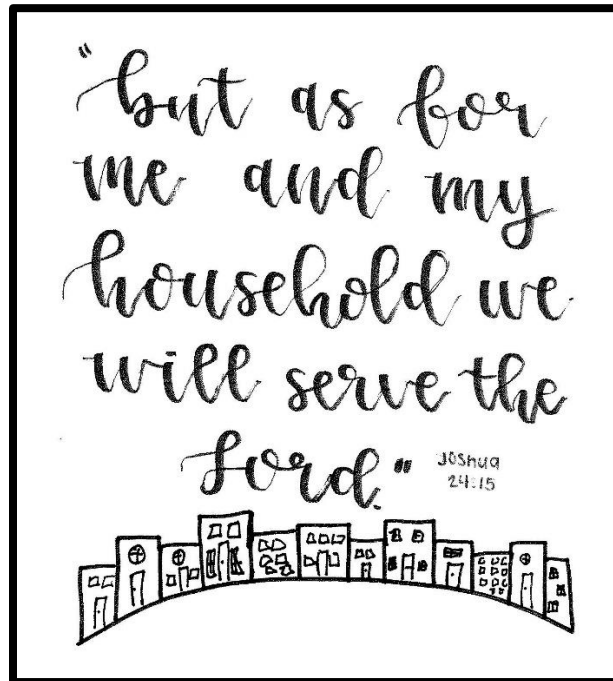 "but as for
me and my
household we
will serve the
Lord."
Joshua
24:15